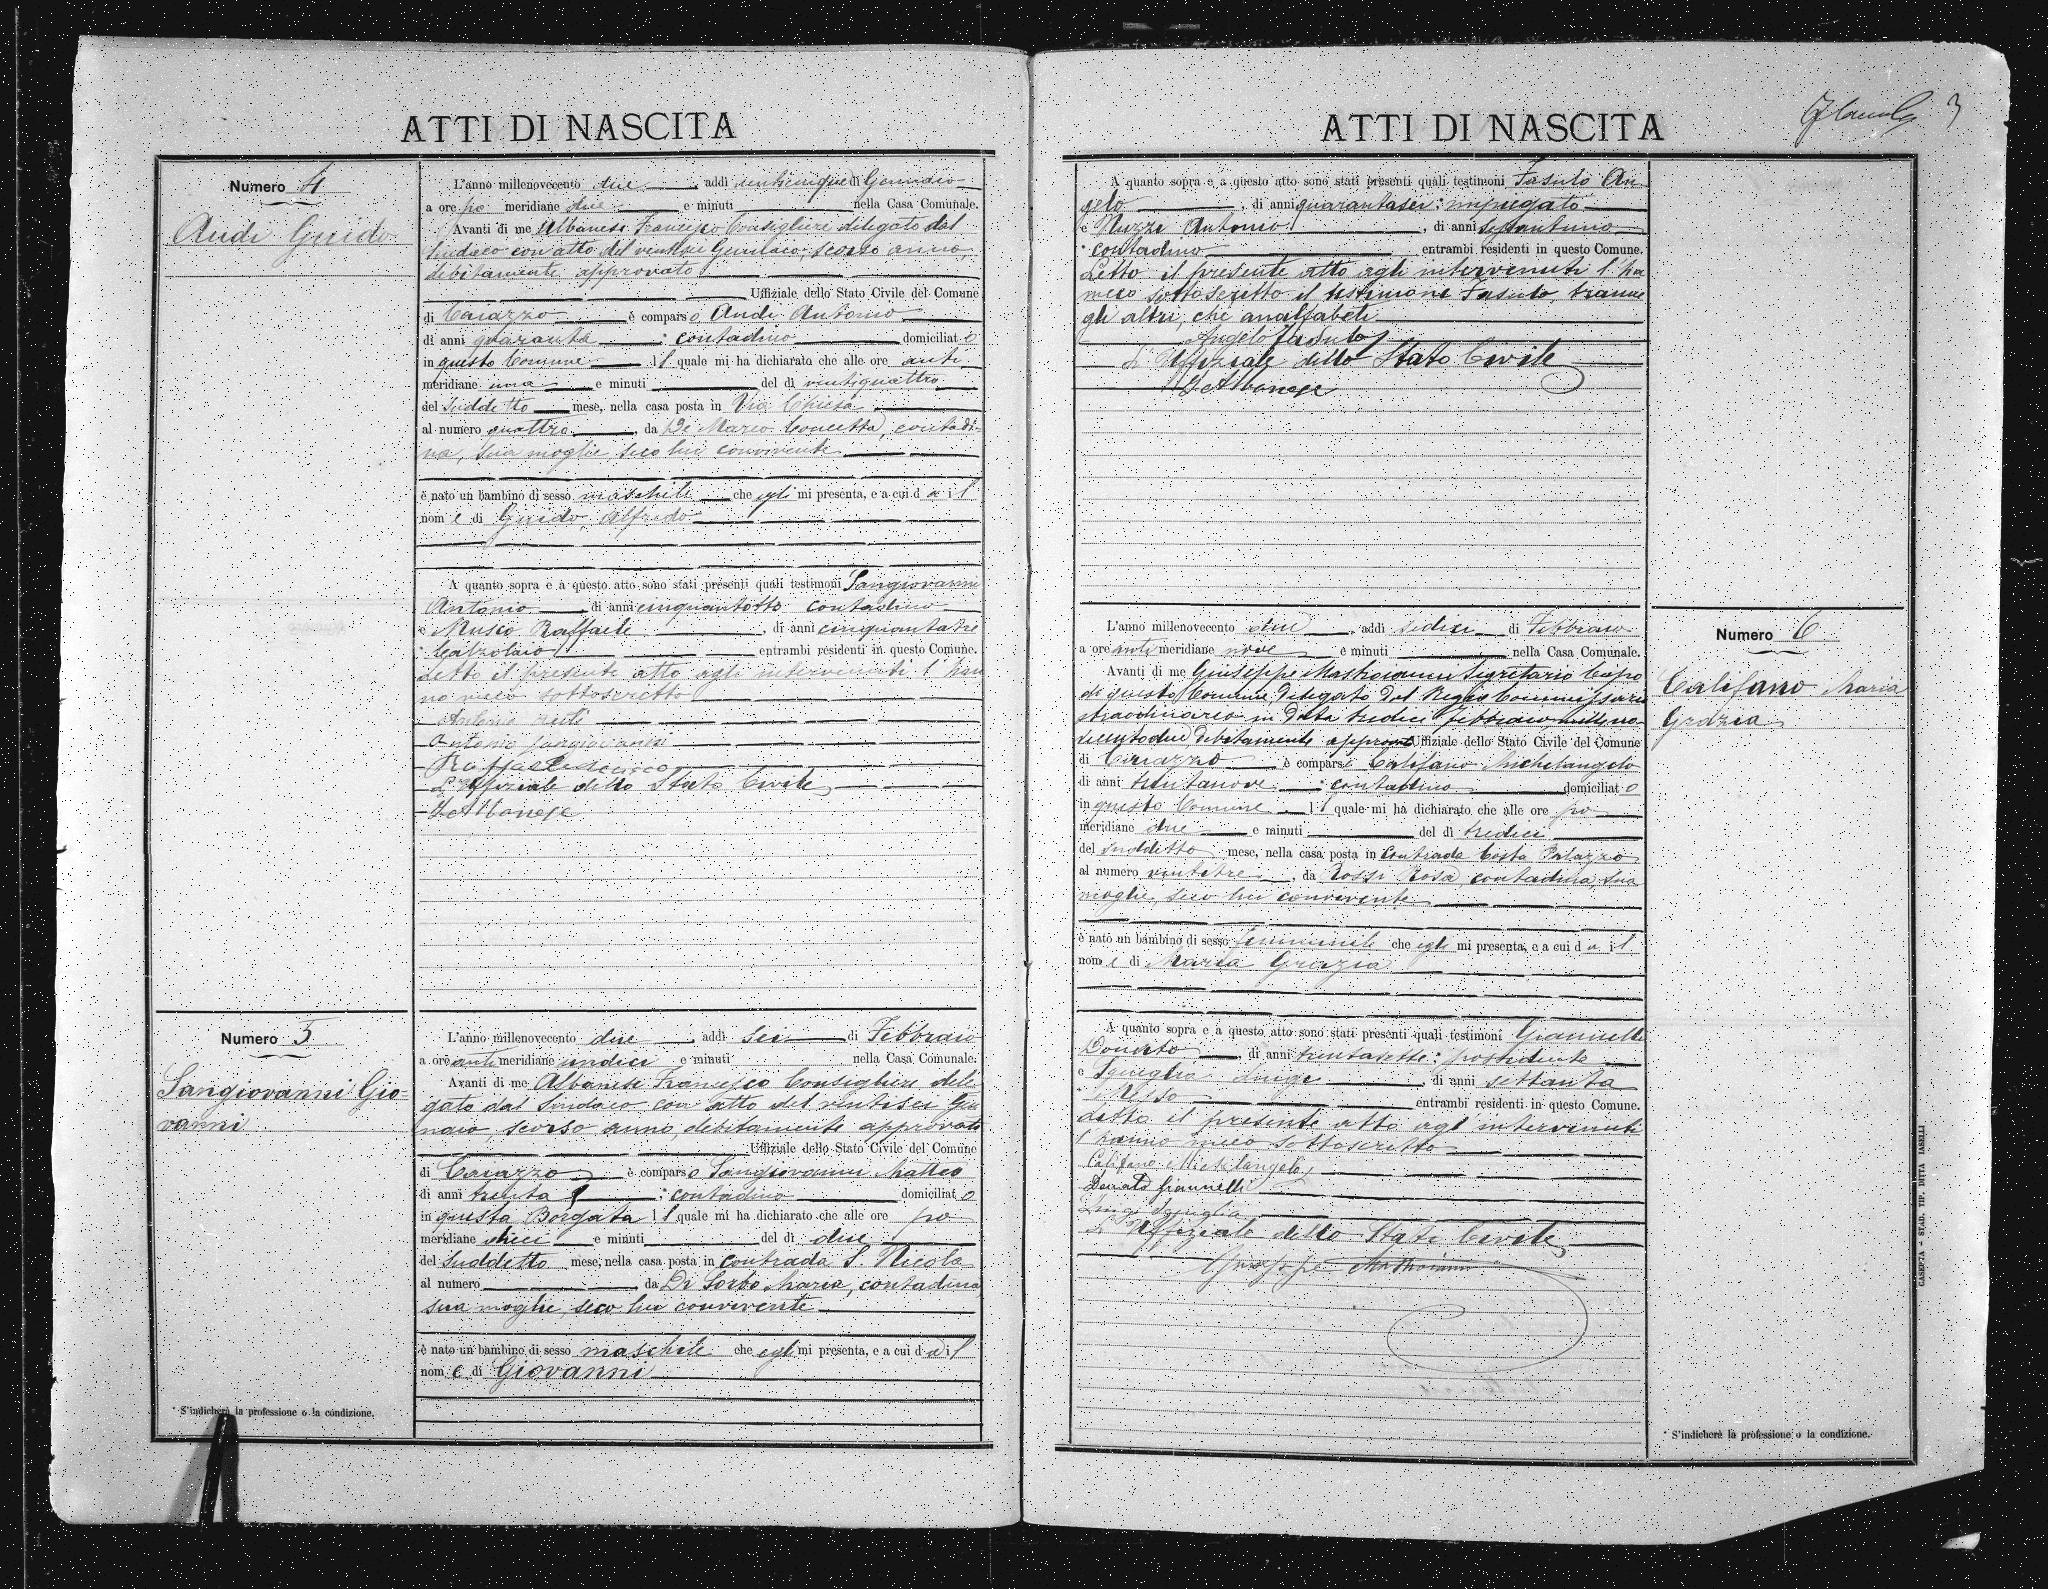 ATTI DI NASCITA
Numero 4
Audi Guido
L'anno millenovecento due, addì venticinque di Gennaio
a ore po meridiane due e minuti nella Casa Comunale.
Avanti di me Albanese Francesco Consigliere delegato dal
Sindaco con atto del ventisei Gennaio, scorso anno,
debitamente approvato
Uffiziale dello Stato Civile del Comune
di Caiazzo è comparso Audi Antonio
di anni quaranta; contadino domiciliato
in questo Comune il quale mi ha dichiarato che alle ore anti
meridiane una e minuti del dì ventiquattro
del suddetto mese, nella casa posta in Via Chiesa
al numero quattro, da De Marco Concetta, contadi-
na, sua moglie, seco lui convivente
è nato un bambino di sesso maschile che egli mi presenta, e a cui dà il
nome di Guido, Alfredo
A quanto sopra e a questo atto sono stati presenti quali testimoni Sangiovanni
Antonio di anni cinquantotto contadino
e Musco Raffaele, di anni cinquantatre
Calzolaio entrambi residenti in questo Comune.
Letto il presente atto agli intervenuti l'han
no meco sottoscritto
Antonio Auti
Antonio Sangiovanni
Raffaele
L'Uffiziale dello Stato Civile
F. Albanese
Numero 5
Sangiovanni Gio-
vanni
L'anno millenovecento due, addì sei di Febbraio
a ore anti meridiane undici e minuti nella Casa Comunale.
Avanti di me Albanese Francesco Consigliere dele
gato dal Sindaco con atto del ventisei Gen
naio, scorso anno, debitamente approvato
Uffiziale dello Stato Civile del Comune
di Caiazzo è comparso Sangiovanni Matteo
di anni trenta; contadino domiciliato
in questa Borgata il quale mi ha dichiarato che alle ore po
meridiane dieci e minuti del dì due
del suddetto mese, nella casa posta in contrada S. Nicola
al numero da De Sorbo Maria, contadina
sua moglie, seco lui convivente
è nato un bambino di sesso maschile che egli mi presenta, e a cui dà il
nome di Giovanni
* S'indicherà la professione o la condizione.
ATTI DI NASCITA
3
A quanto sopra e a questo atto sono stati presenti quali testimoni Fasulo An
gelo, di anni quarantasei; impiegato
e Nuzzi Antonio, di anni settantuno
contadino entrambi residenti in questo Comune.
Letto il presente atto agli intervenuti l'ha
meco sottoscritto il testimone Fasulo, tranne
gli altri, che analfabeti
Angelo Fasulo
L'Uffiziale dello Stato Civile
F. Albanese
Numero 6
Califano Maria
Grazia
L'anno millenovecento due, addì sedici di Febbraio
a ore anti meridiane nove e minuti nella Casa Comunale.
Avanti di me Giuseppe Mastroianni Segretario Capo
di questo Comune, delegato dal Regio Commissario
straordinario in data tredici febbraio milleno-
vecentodue, debitamente approvato Uffiziale dello Stato Civile del Comune
di Caiazzo è comparso Califano Michelangelo
di anni trentanove; contadino domiciliato
in questo Comune il quale mi ha dichiarato che alle ore po
meridiane due e minuti del dì tredici
del suddetto mese, nella casa posta in contrada Costa Palazzo
al numero ventitre, da Rossi Rosa, contadina, sua
moglie, seco lui convivente
è nato un bambino di sesso femminile che egli mi presenta, e a cui dà il
nome di Maria Grazia
A quanto sopra e a questo atto sono stati presenti quali testimoni Giannelli
Donato, di anni trentasette; possidente
e Squeglia Luigi, di anni settanta
Messo entrambi residenti in questo Comune.
Letto il presente atto agl'intervenuti
l'hanno meco sottoscritto
Califano Michelangelo
Donato Giannelli
Luigi Squeglia
L'Uffiziale dello Stato Civile
Giuseppe Mastroianni
* S'indicherà la professione o la condizione.
CASERTA - STAB. TIP. DITTA IASELLI